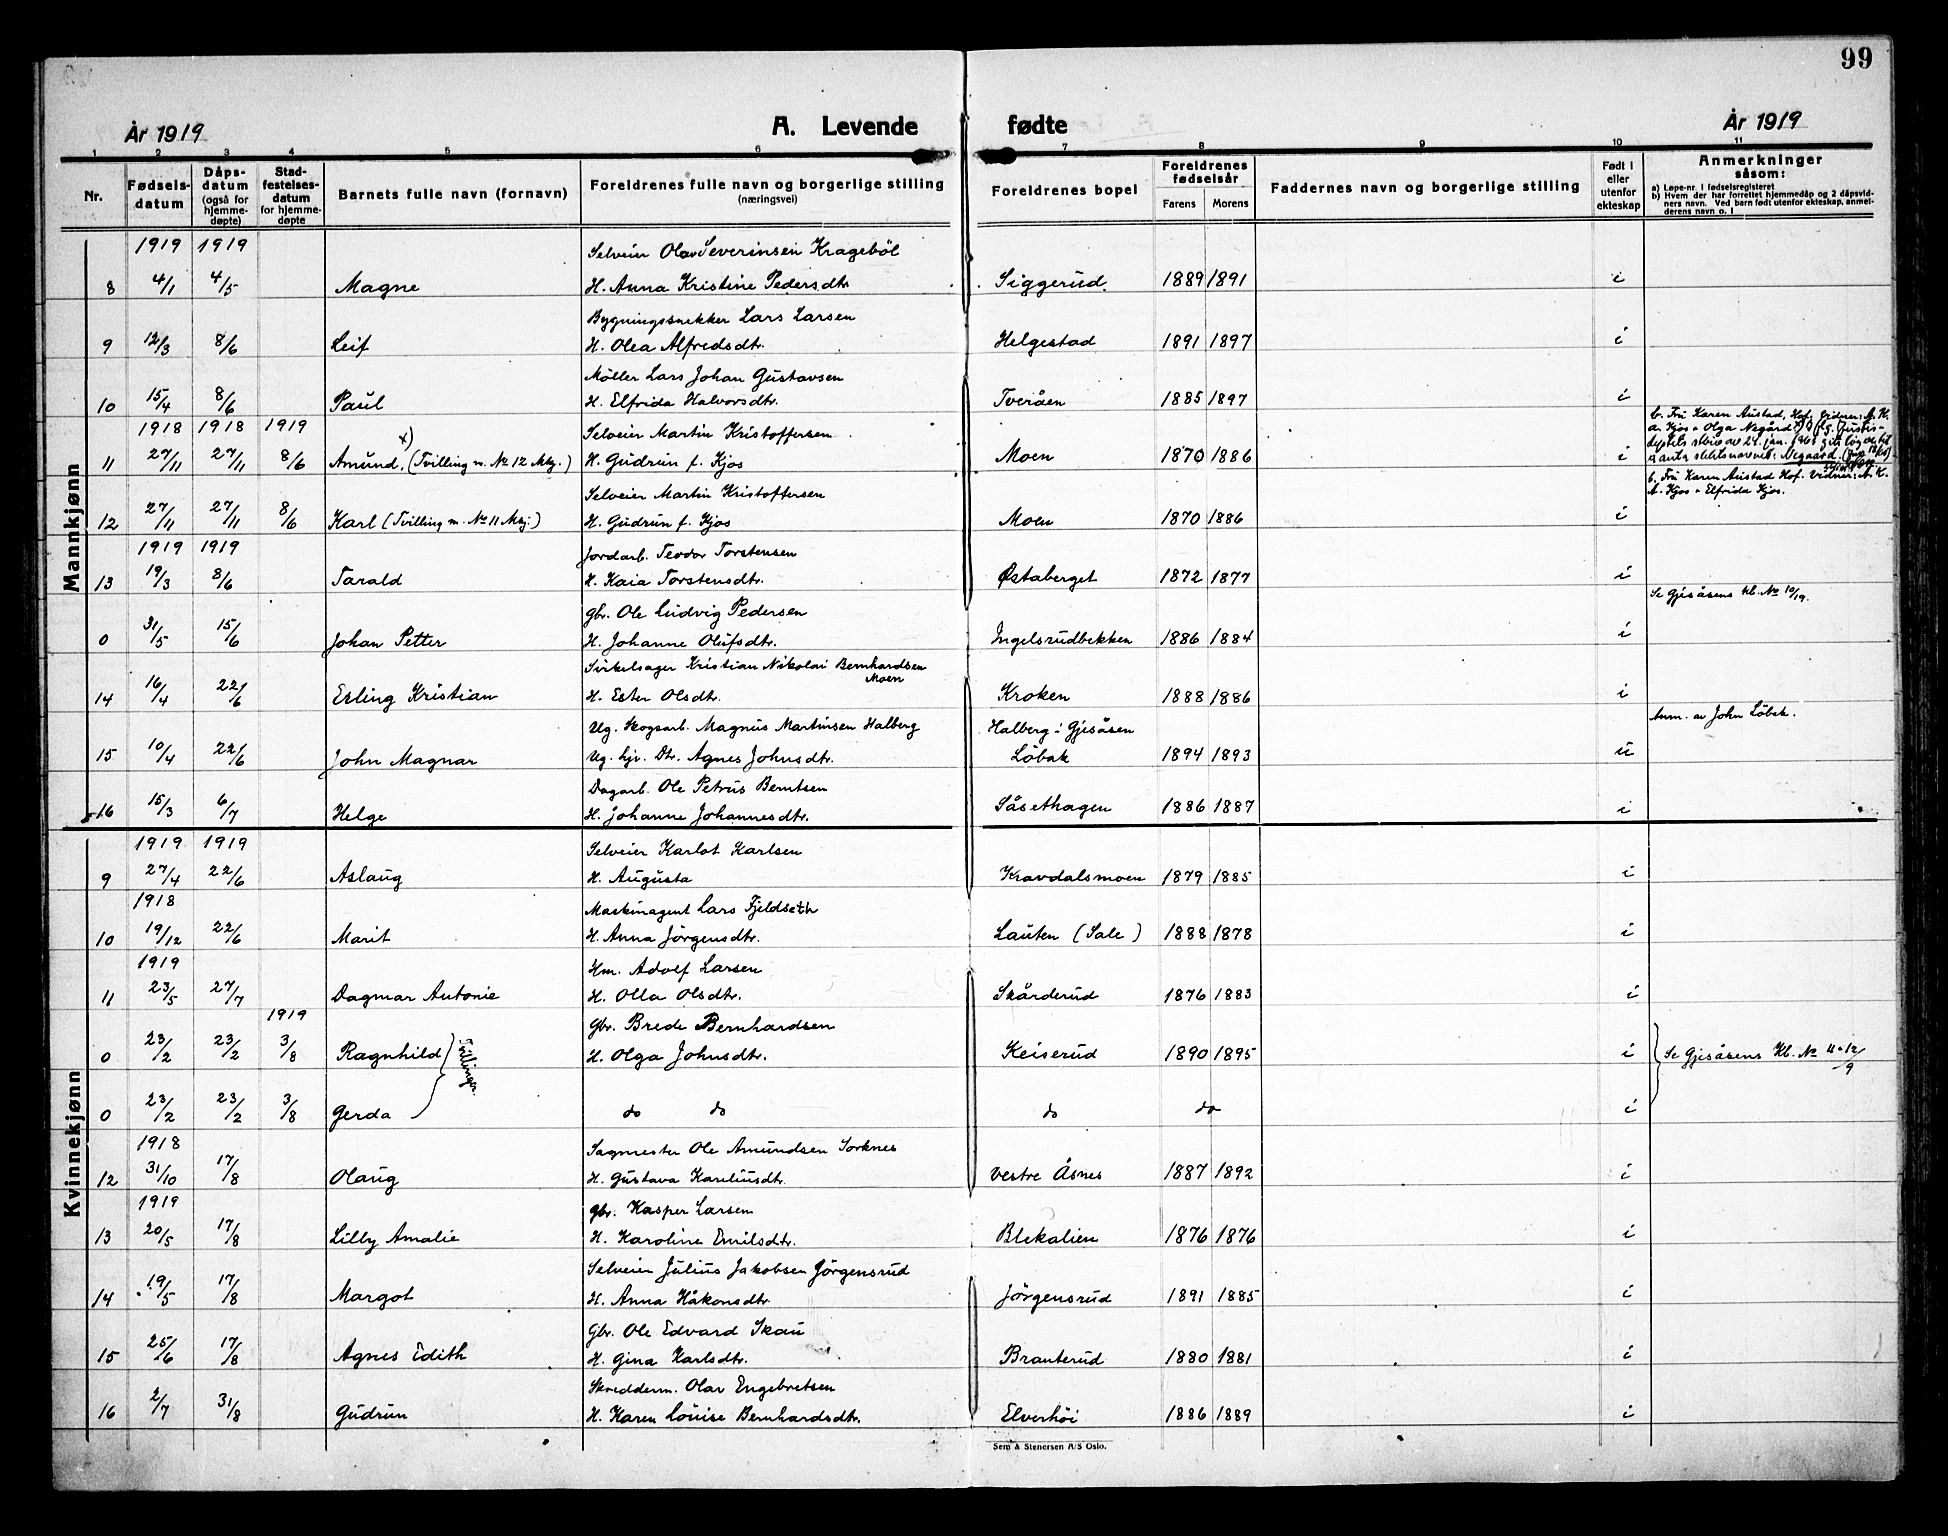 99
År 1919
A. Levende fødte
År 1919
1 2 3 4 5 6 7 8 9 10 11
Nr.
Fødsels-
datum
Dåps-
datum
(også for
hjemme-
døpte)
Stad-
festelses-
datum
for hjemme-
døpte
Barnets fulle navn (fornavn)
Foreldrenes fulle navn og borgerlige stilling
(næringsvei)
Foreldrenes bopel
Foreldrenes
fødselsår
Farens Morens
Faddernes navn og borgerlige stilling
Født i
eller
utenfor
ekteskap
Anmerkninger
såsom:
a) Løpe-nr. i fødselsregisteret
b) Hvem der har forrettet hjemmedåp og 2 dåpsvid-
ners navn. Ved barn født utenfor ekteskap, anmel-
derens navn o. l
Mannkjønn
1919 1919 Selveier Olav Severinsen Kragebøl
8 4/1 4/5 Magne H. Anna Kristine Pedersdtr. Siggerud. 1889 1891 i
Bygningssnekker Lars Larsen
9 12/3 8/6 Leif H. Olea Alfredsdtr. Helgestad 1891 1897 i
Møller Lars Johan Gustavsen
10 15/4 8/6 Paul H. Elfrida Halvorsdtr. Tveråen 1885 1897 i
1918 1918 1919 Selveier Martin Kristoffersen b. Fru Karen Austad, Hof. Vidner: A. K.
x) a. Kjos o Olga Negård x) Iflg. Justis-
11 27/11 27/11 8/6 Amund. (Tvilling m. No 12 Mkj.) H. Gudrun f. Kjos Moen 1870 1886 i
anta slektsnavnet: Negaard.
1918 Selveier Martin Kristoffersen b. Fru Karen Austad Hof. Vidner: A. K.
A. Kjos o Elfrida Kjos.
12 27/11 27/11 8/6 Karl (Tvilling m. No 11 Mkj.) H. Gudrun f. Kjos Moen 1870 1886 i
1919 1919 Jordarb. Teodor Torstensen
13 19/3 8/6 Tarald H. Kaia Torstensdtr. Østaberget 1872 1877 i
Gbr. Ole Ludvig Pedersen Se Gjesåsens kb. No 10/19.
0 31/5 15/6 Johan Petter H. Johanne Olufsdtr. Ingelsrudbekken 1886 1884 i
Sirkelsager Kristian Nikolai Bernhardsen
Moen
14 16/4 22/6 Erling Kristian H. Ester Olsdtr. Kroken 1888 1886 i
Ug. Skogsarb. Magnus Martinsen Halberg Halberg i Gjesåsen Anm. av John Løbak.
15 10/4 22/6 John Magnar Ug. hjv. Dtr. Agnes Johnsdtr. Løbak 1894 1893 u
Dagarb. Ole Petrus Berntsen
16 15/3 6/7 Helge H. Johanne Johannesdtr. Såsethagen 1886 1887 i
Kvinnekjønn
1919 1919 Selveier Karlot Karlsen
9 27/4 22/6 Aslaug H. Augusta Kravdalsmoen 1879 1885 i
1918 Maskinagent Lars Fjeldseth
10 19/12 22/6 Marit H. Anna Jørgensdtr. Lauten (Sale) 1888 1878 i
1919 Hm. Adolf Larsen
11 23/5 27/7 Dagmar Antonie H. Olla Olsdtr. Skårderud 1876 1883 i
1919 Gbr. Brede Bernhardsen
0 23/2 23/2 3/8 Ragnhild Tvillinger. H. Olga Johnsdtr. Keiserud 1890 1895 i Se Gjesåsens Kb. No 11 o 12/9
0 23/2 23/2 3/8 Gerda do do do do i
1918 Sagmester Ole Amundsen Sorknes
12 31/10 17/8 Olaug H. Gustava Kareliusdtr. Vestre Åsnes 1887 1892 i
1919 Gbr. Kasper Larsen
13 20/5 17/8 Lilly Amalie H. Karoline Emilsdtr. Blekalien 1876 1876 i
Selveier Julius Jakobsen Jørgensrud
14 19/5 17/8 Margot H. Anna Håkonsdtr. Jørgensrud 1891 1885 i
Gbr. Ole Edvard Skau
15 25/6 17/8 Agnes Edith H. Gina Karlsdtr. Branterud 1880 1881 i
Skredderm. Olav Engebretsen
16 2/7 31/8 Gudrun H. Karen Louise Bernhardsdtr. Elverhøi 1886 1889 i
Sem & Stenersen A/S Oslo.